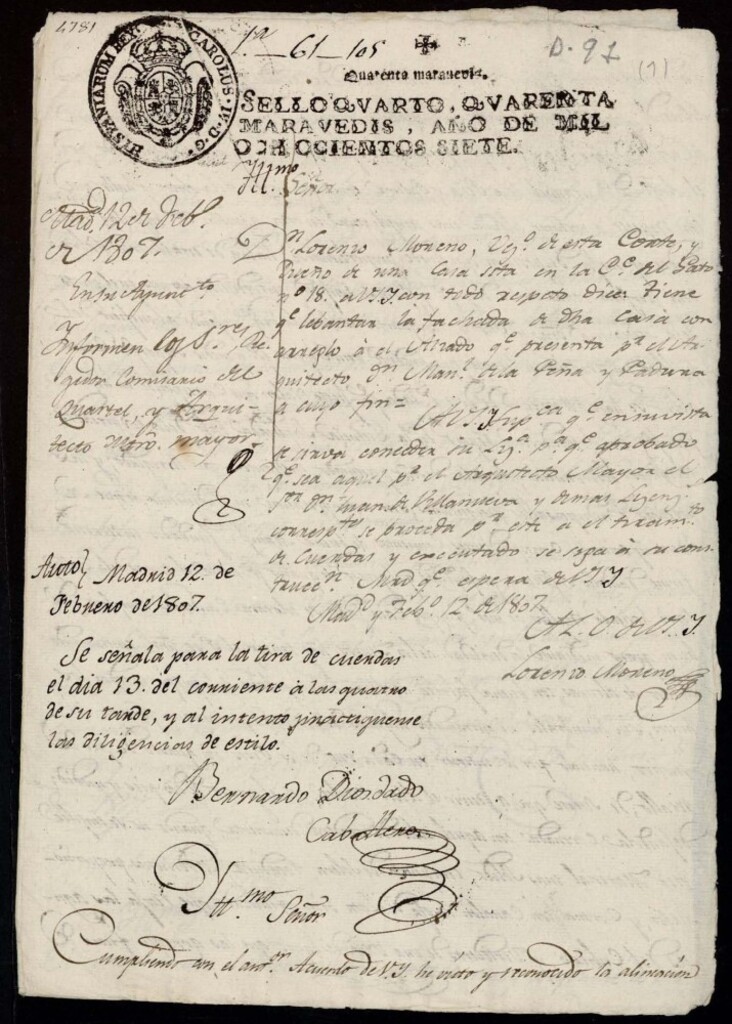 4781
HISPANIARUM REX. CAROLUS. IV. D. G.
1ª_61_105
D-91
(1)
Quarenta maravedis.
SELLO QVARTO, QVARENTA
MARAVEDIS, AÑO DE MIL
OCHOCIENTOS SIETE.
Illmo Señor
Madd. 12 de Feb.
de 1807.
En su Ayuntto
Informen los Sres Re-
gidor Comisario del
Quartel, y Arqui-
tecto Mro. mayor.
Dn Lorenzo Moreno, Vezº de esta Corte, y
Dueño de una Casa sita en la Ce. del Gato
nº 18. a V.S.I con todo respeto dice: Tiene
qe lebantar la fachada de dha Casa con
arreglo à el Alzado qe presenta pr el Ar-
quitecto Dn Manl de la Peña y Padura
a cuyo fin=
A V.I Suppca qe en su vista
se sirva conceder su Liza pa qe aprobado
qe sea aquel pr el Arquitecto Mayor el
Sor Dn Juan de Villanueva y demas
corresptes se proceda pr este a el tiramto
de Cuerdas y executado se siga à su cons-
truccn. Mrd qe espera de V.I
Madd y Febº 12 de 1807.
A L. P. de V. I.
Lorenzo Moreno
Auto Madrid 12. de
Febrero de 1807.
Se señala para la tira de cuerdas
el dia 13. del corriente à las quatro
de su tarde, y al intento practiquense
las diligencias de estilo.
Bernardo Diosdado
Caballero
Illmo Señor
Cumpliendo con el antor Acuerdo de V.I. he visto y reconocido la alineación